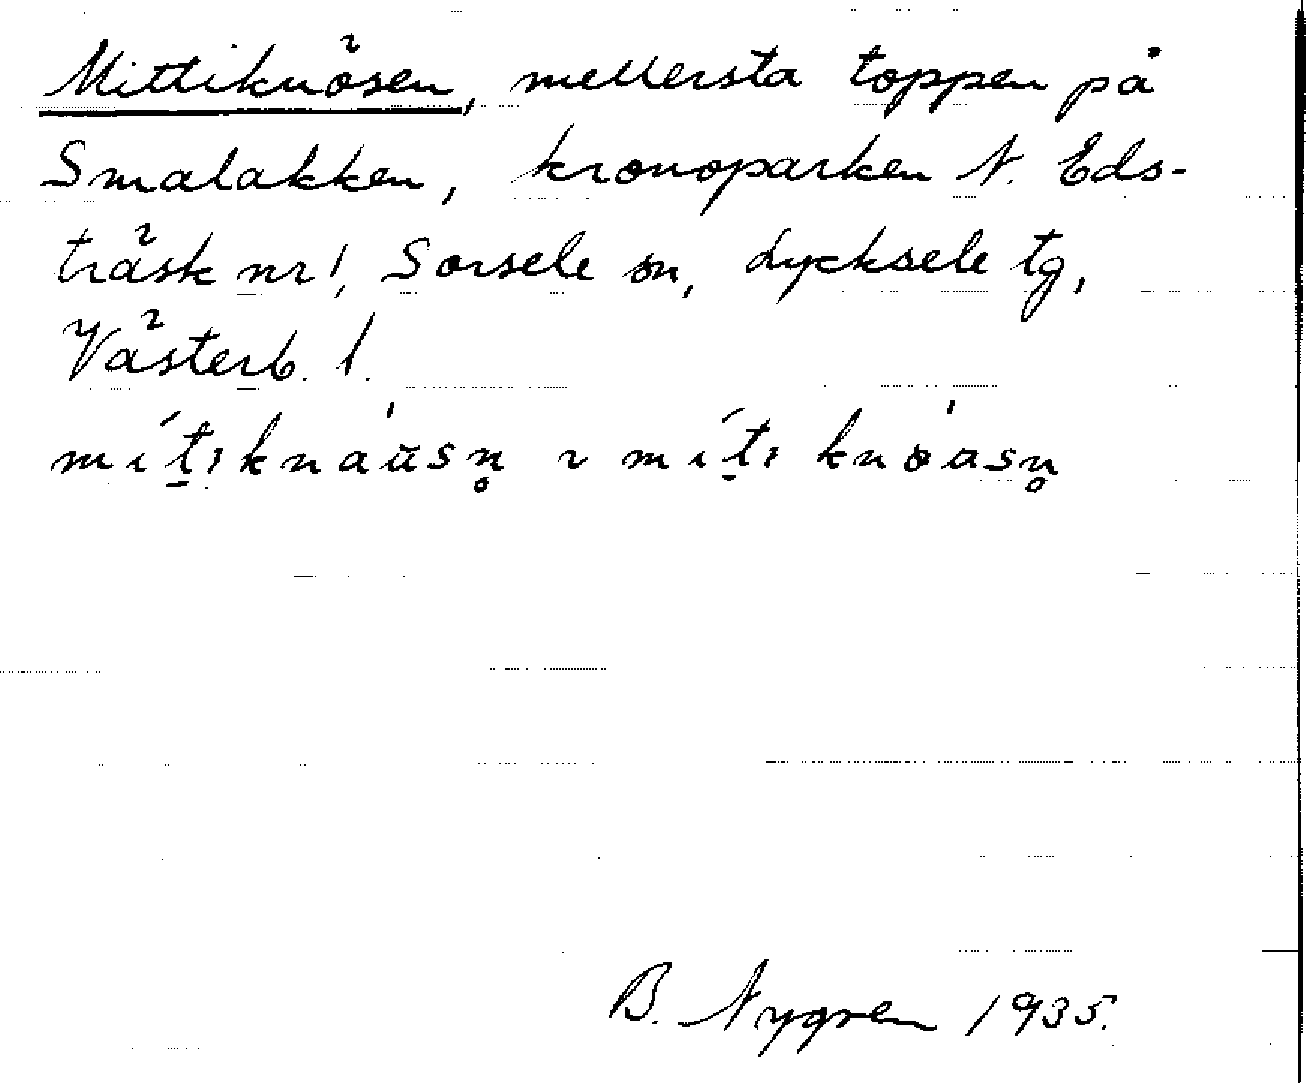 Mittiknösen, mellersta toppen på
Smalakken, kronoparken N. Eds-
träsk nr 1, Sorsele sn, Lycksele tg,
Västerb. l.
mít̠iknáu̇sn̥ ~ mít̠iknȯ́asn̥
B. Nygren 1935.